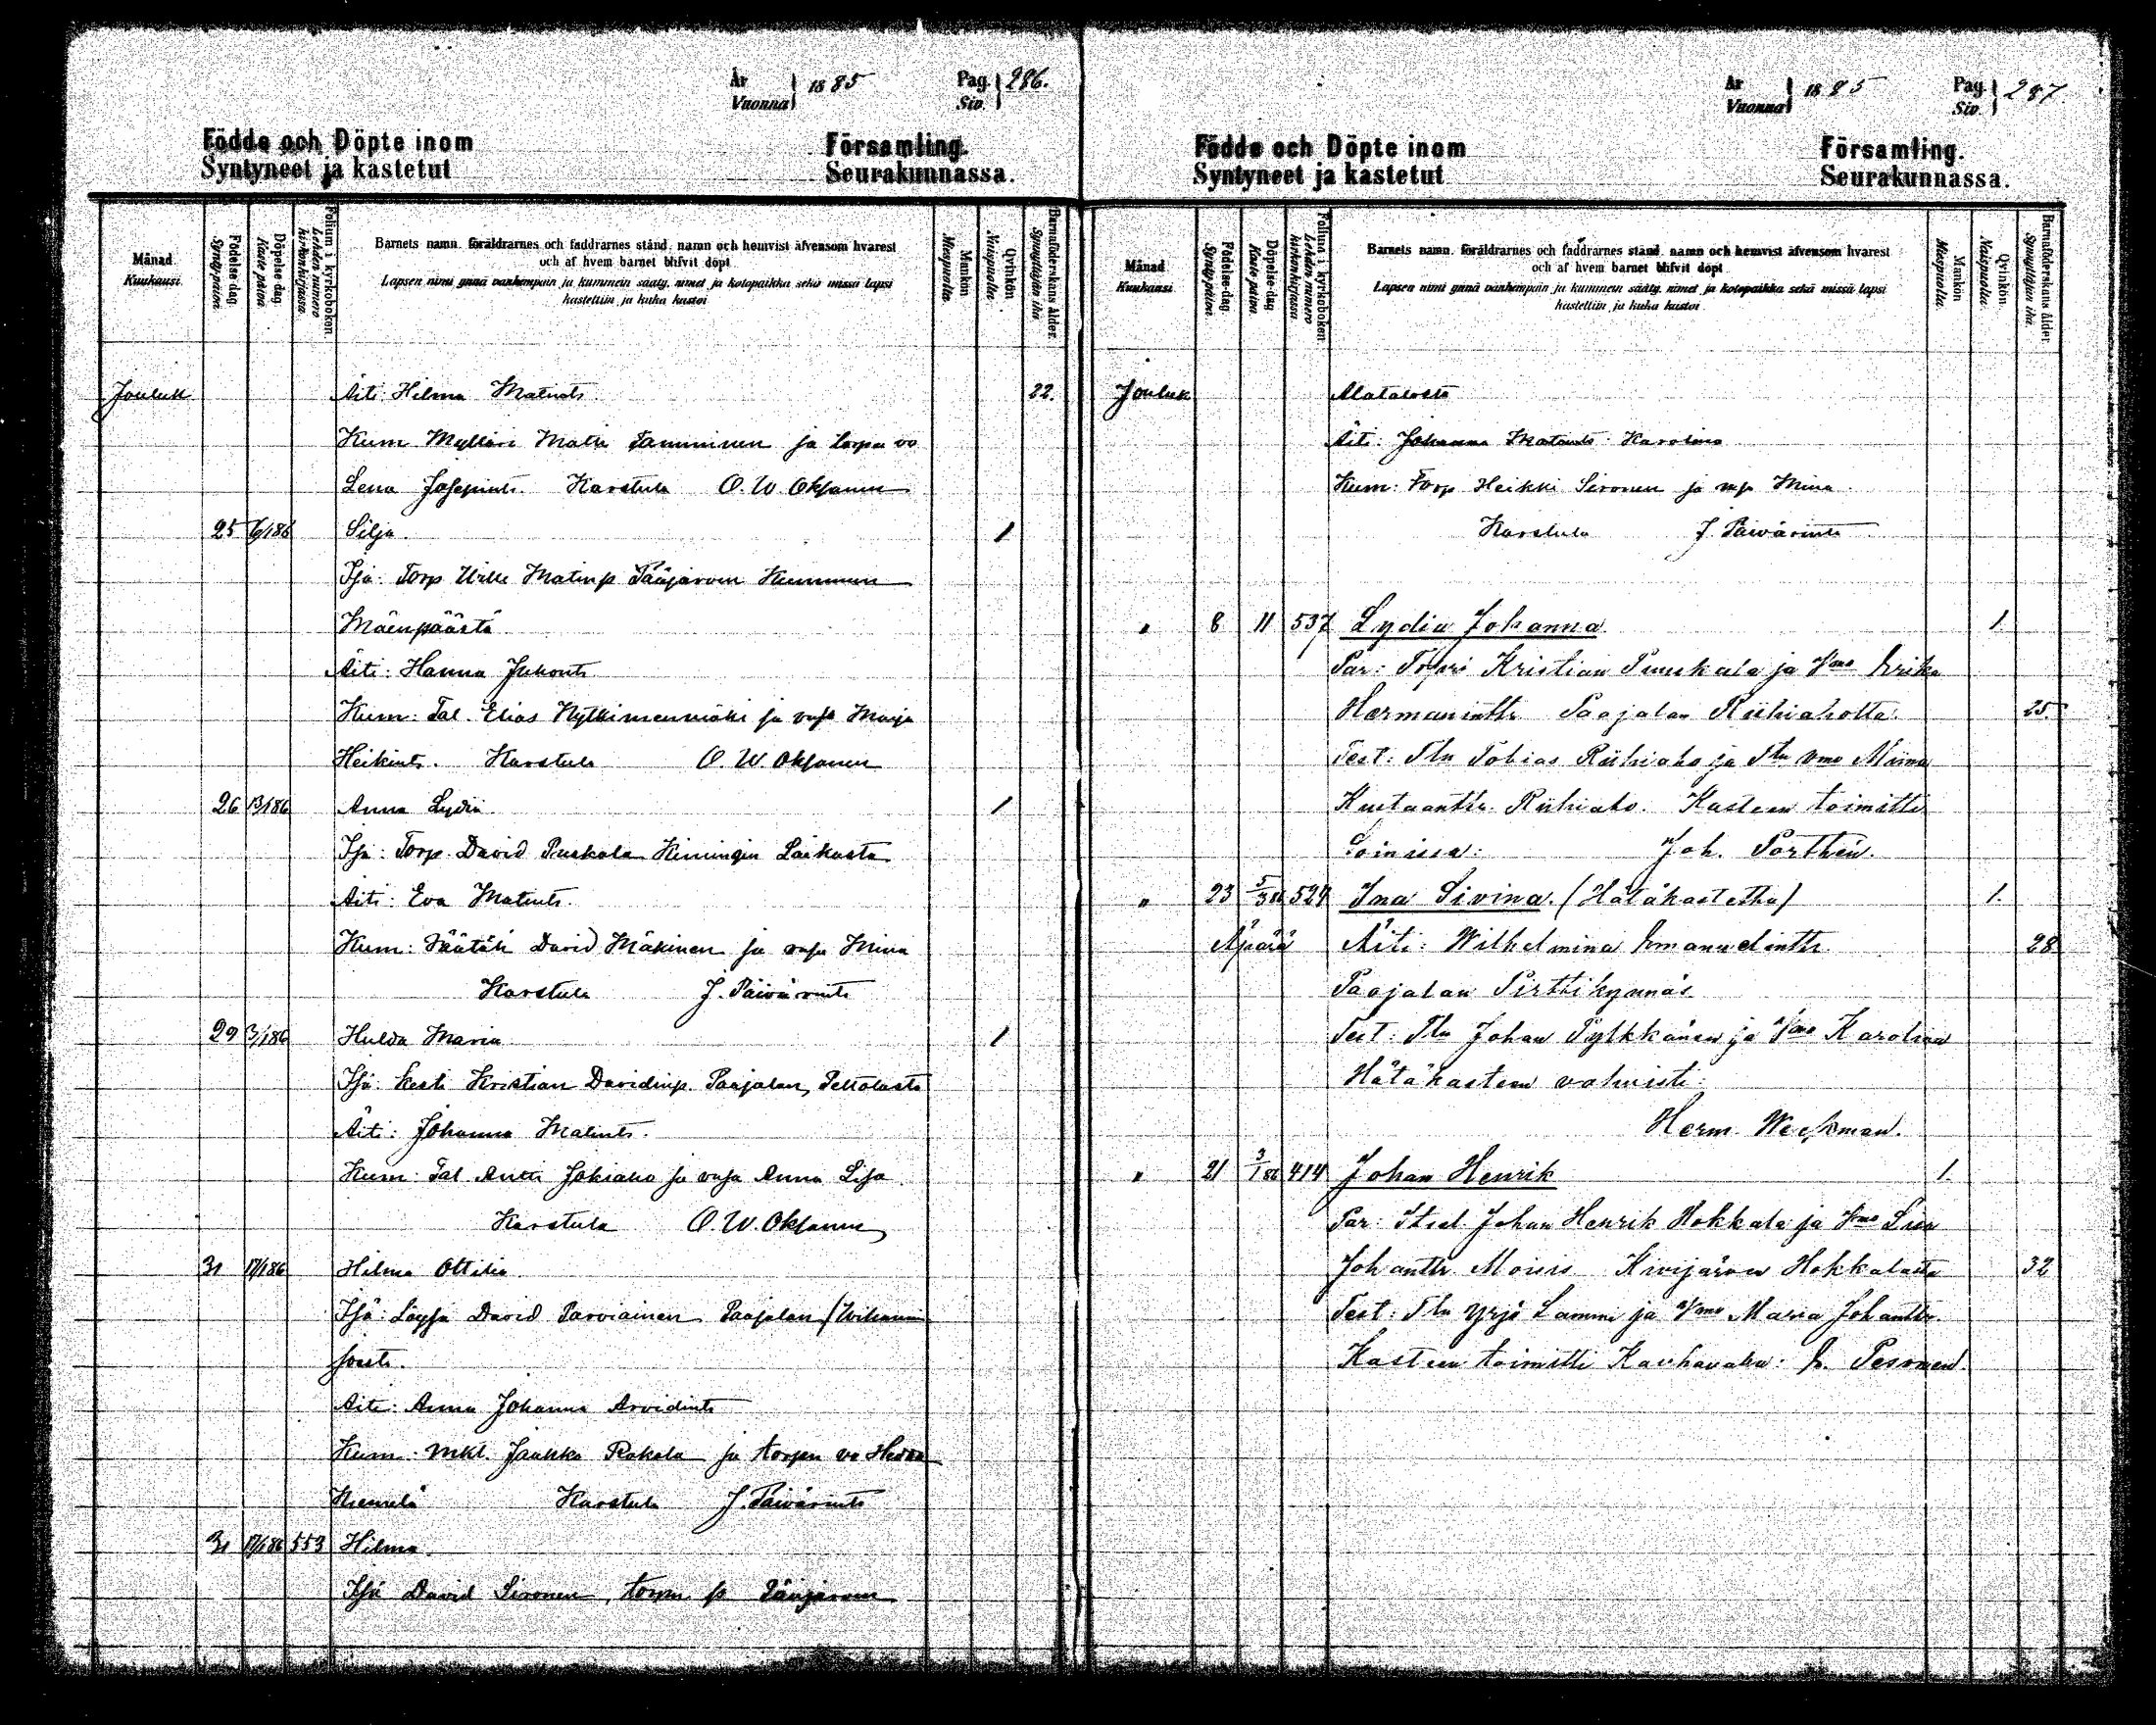 År Vuonna 1885 Pag. Siv. 286.
Födde och Döpte inom Församling.
Syntyneet ja kastetut Seurakunnassa.
Månad Kuukausi
Födelse dag. Syntypäivä
Döpelse dag. Kaste päivä
Folium i kyrkoboken. Lehden numero kirkonkirjassa
Barnets namn, föräldrarnes och faddrarnes stånd, namn och hemvist äfvensom hvarest
och af hvem barnet blifvit döpt
Lapsen nimi ynnä vanhempain ja kummein sääty, nimet ja kotopaikka sekä missä lapsi
kastettiin ja kuka kastoi
Mankön Miespuolia.
Qvinkön Naispuolia.
Barnaföderskans ålder. Synnyttäjän ikä
Jouluk Äiti: Hilma Matints 22.
Kum Mylläri Matti Tamminen ja torpn vo
Lena Josepints. Karstula O. W. Oksanen
25 6/1 86 Silja 1
Isä: Torp Wille Matinp Pääjärven Kumm
Mäenpäästä
Äiti: Hanna Juhonts
Kum: Tal. Elias Hytkinenmäki ja vaps Maija
Heikints. Karstula O. W. Oksanen
26 13/1 86 Anna Lydia 1
Isä: Torp. David Puskala Kimingin
Äiti: Eva Matints.
Kum: Räätäli David Mäkinen ja vaps Mina
Karstula J. Päivärinta
29 3/1 86 Hulda Maria 1
Isä: Kesti Kristian Davidinp. Paajalan, Peltolasta
Äiti: Johanna Matints.
Kum: Tal Antti Jokiaho ja vapsa Anna Lisa.
Karstula O. W. Oksanen
31 17/1 86 Hilma Ottilia
Isä: David Parviainen Paajalan
Äiti: Anna Johanna Arvidints
Kum: Mkl. Jaakko Rokala ja torpn vo Hedda
Karstula J. Päivärinta
31 17/1 86 553 Hilma
Isä David Sironen, torpn p Pääjärven
År Vuonna 1885 Pag. Siv. 287.
Födde och Döpte inom Församling.
Syntyneet ja kastetut Seurakunnassa.
Månad Kuukausi
Födelse-dag. Syntypäivä
Döpelse dag. Kaste päivä
Folium i kyrkoboken. Lehden numero kirkonkirjassa.
Barnets namn, föräldrarnes och faddrarnes stånd, namn och hemvist äfvensom hvarest
och af hvem barnet blifvit döpt
Lapsen nimi ynnä vanhempain ja kummein sääty, nimet ja kotopaikka sekä missä lapsi
kastettiin ja kuka kastoi
Mankön Miespuolia.
Qvinkön. Naispuolia.
Barnaföderskans ålder. Synnyttäjän ikä
Jouluk Alatalosta
Äiti: Johanna Karolina
Kum: Torp Heikki Sironen ja vap Mina
Karstula J. Päivärinta
" 8 11 537 Lydia Johanna 1.
Par: Torpri Kristian Puuskala ja Vmo Erika
Hermanintr. Paajalan Riihiaholta. 25.
Test: Tln Tobias Riihiaho ja Tln vmo Miina
Kustaanttr. Riihiaho. Kasteen toimitti
Soinissa: Joh. Porthén.
" 23 5/3 86 529 Ina Sivina. (Hätäkastettu) 1.
Äpärä Äiti: Wilhelmina Emanuelinttr. 28
Paajalan Pirttikynnäs
Test: Tln Johan Pylkkänen ja Vmo Karolina
Hätäkasteen vahvisti:
Herm. Weckman.
" 21 3/1 86 414 Johan Henrik 1.
Par: Itsel Johan Henrik Hokkala ja Vmo Lisa
Johanttr. Kivijärven Hokkalasta 32
Test: Tln Yrjö Lammi ja Vmo Maria Johanttr.
Kasteen toimitti E. Pesonen.